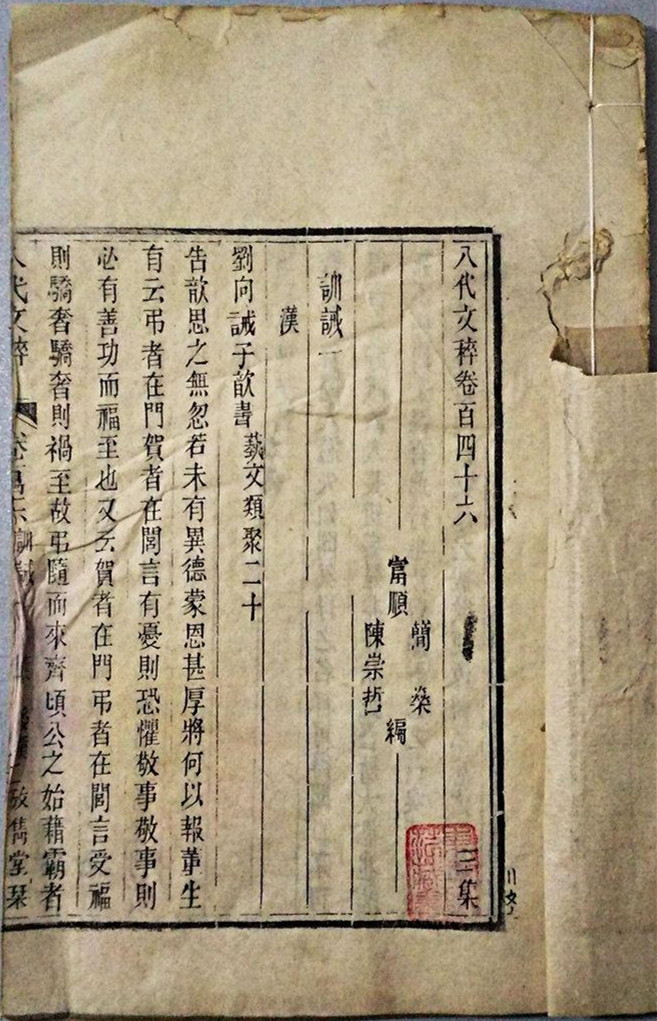 八代文稡卷百四十六
三集
富順
簡燊
陳崇哲
編
訓誡一
漢
劉向誡子歆書 蓺文類聚二十
告歆思之無忽若未有異德蒙恩甚厚將何以報董生
有云弔者在門賀者在閭言有憂則恐懼敬事敬事則
必有善功而福至也又云賀者在門弔者在閭言受福
則驕奢驕奢則禍至故弔隨而來齊頃公之始藉霸者
八代文稡
訓誡
堂栞